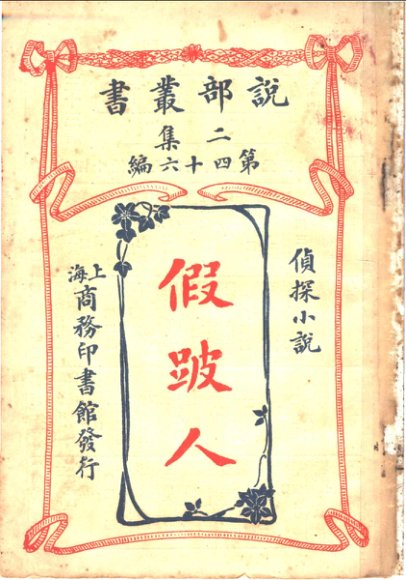 說部叢書
二集
第四十六編
偵探小說
假跛人
上海
商務印書館發行